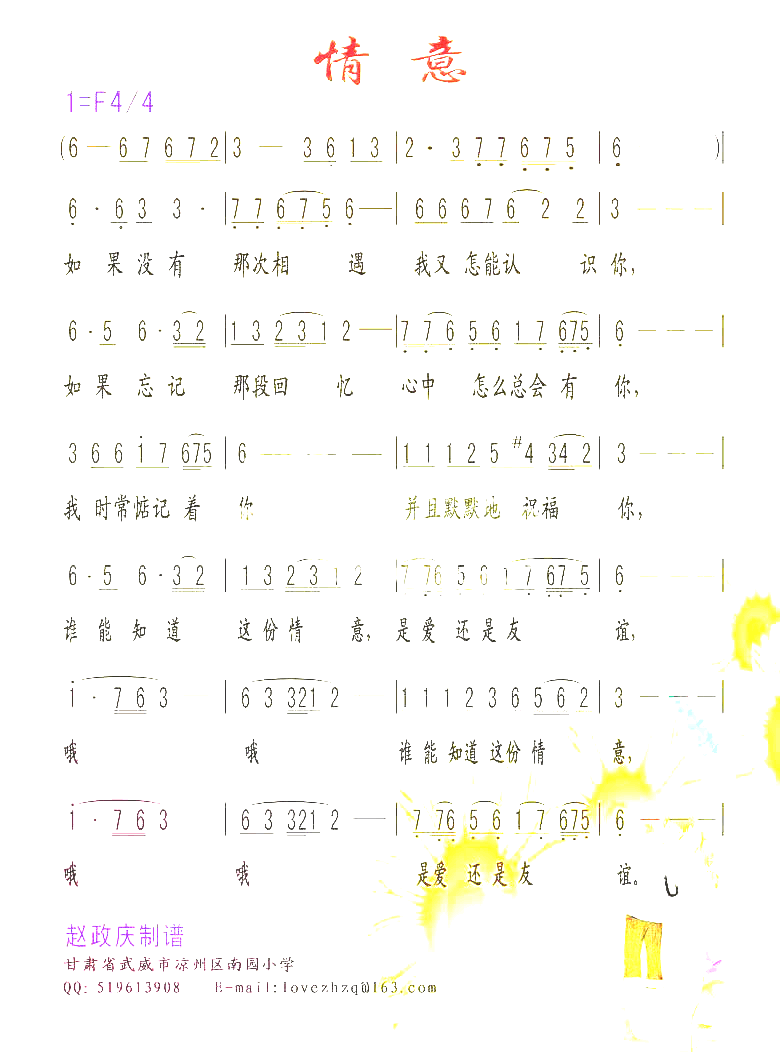 情 意
1=F4/4
(6 — 6 7 6 7 2 | 3 — 3 6 1 3 | 2 · 3 7 7 6 7 5 | 6 )|
6 · 6 3 3 · | 7 7 6 7 5 6 — | 6 6 6 7 6 2 2 | 3 — — — |
如 果 没 有 那次相 遇 我又 怎能认 识 你,
6 · 5 6 · 3 2 | 1 3 2 3 1 2 — | 7 7 6 5 6 1 7 6 7 5 | 6 — — — |
如 果 忘 记 那段回 忆 心中 怎么总会 有 你,
3 6 6 1 7 6 7 5 | 6 — — — | 1 1 1 2 5 #4 3 4 2 | 3 — — — |
我 时常惦记 着 你 并且默默地 祝福 你,
6 · 5 6 · 3 2 | 1 3 2 3 1 2 | 7 7 6 5 6 1 7 6 7 5 | 6 — — — |
谁 能 知 道 这份情 意, 是爱 还是友 谊,
1 · 7 6 3 | 6 3 3 2 1 2 · | 1 1 1 2 3 6 5 6 2 | 3 — — — |
哦 哦 谁能 知道 这份 情 意,
1 · 7 6 3 | 6 3 3 2 1 2 — | 7 7 6 5 6 1 7 6 7 5 | 6 — — — |
哦 哦 是爱 还 是 友 谊。
赵政庆制谱
甘肃省武威市凉州区南园小学
QQ: 519613908 E-mail:lovezhzq@163.com